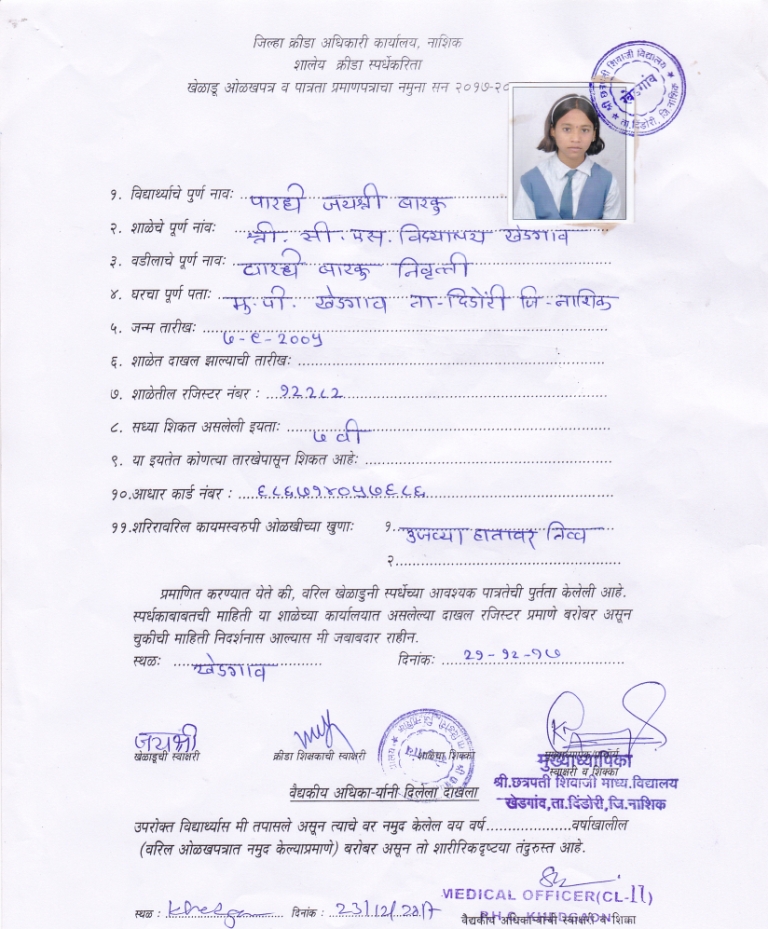 जिल्हा क्रीडा अधिकारी कार्यालय, नाशिक
शालेय क्रीडा स्पर्धेकरिता
खेळाडू ओळखपत्र व पात्रता प्रमाणपत्राचा नमुना सन २०१७-२०
श्री छत्रपती शिवाजी विद्यालय खेडगांव ता.दिंडोरी, जि.नाशिक
१. विद्यार्थ्याचे पुर्ण नावः पारधी जयश्री बारकु
२. शाळेचे पूर्ण नांवः श्री. सी. एस. विद्यालय खेडगाव
३. वडीलाचे पूर्ण नावः पारधी बारकु निवृत्ती
४. घरचा पुर्ण पताः मु. पी. खेडगाव ता-दिंडोरी जि-नाशिक
५. जन्म तारीखः ७-९-२००५
६. शाळेत दाखल झाल्याची तारीखः
७. शाळेतील रजिस्टर नंबर : १२२८२
८. सध्या शिकत असलेली इयताः ७ वी
९. या इयतेत कोणत्या तारखेपासून शिकत आहेः
१०.आधार कार्ड नंबर : ६८६७१४०५७६८६
११.शरिरावरिल कायमस्वरुपी ओळखीच्या खुणाः १. उजव्या हातावर
२.
प्रमाणित करण्यात येते की, वरिल खेळाडुनी स्पर्धेच्या आवश्यक पात्रतेची पुर्तता केलेली आहे.
स्पर्धकाबाबतची माहिती या शाळेच्या कार्यालयात असलेल्या दाखल रजिस्टर प्रमाणे बरोबर असून
चुकीची माहिती निदर्शनास आल्यास मी जवाबदार राहीन.
स्थळः खेडगाव दिनांकः २१-१२-१७
जयश्री
खेळाडूची स्वाक्षरी क्रीडा शिक्षकाची स्वाक्षरी शाळेचा शिक्का स्वाक्षरी व शिक्का
मुख्याध्यापिका
श्री.छत्रपती शिवाजी माध्य.विद्यालय
खेडगांव,ता.दिंडोरी,जि.नाशिक
वैद्यकीय अधिका-यांनी दिलेला दाखला
उपरोक्त विद्यार्थ्यास मी तपासले असून त्याचे वर नमुद केलेल वय वर्ष वर्षाखालील
(वरिल ओळखपत्रात नमुद केल्याप्रमाणे) बरोबर असून तो शारीरिकदृष्टया तंदुरुस्त आहे.
MEDICAL OFFICER(CL-II)
P.H.C. KHEDGAON
स्थळ : Khedgaon दिनांक : 23/12/2017 वैद्यकीय अधिकाऱ्याची स्वाक्षरी व शिका